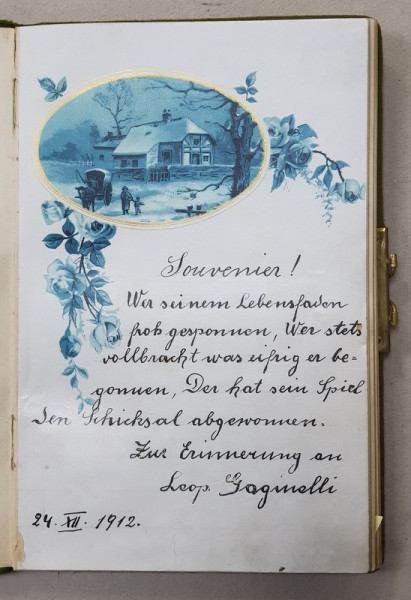 Souvenier!
Wer seinem Lebensfaden
froh gesponnen, Wer stets
vollbracht was eifrig er be-
gonnen, Der hat sein Spiel
Den Schicksal abgewonnen.
Zur Erinnerung an
Leop. Gaginelli
24. XII. 1912.